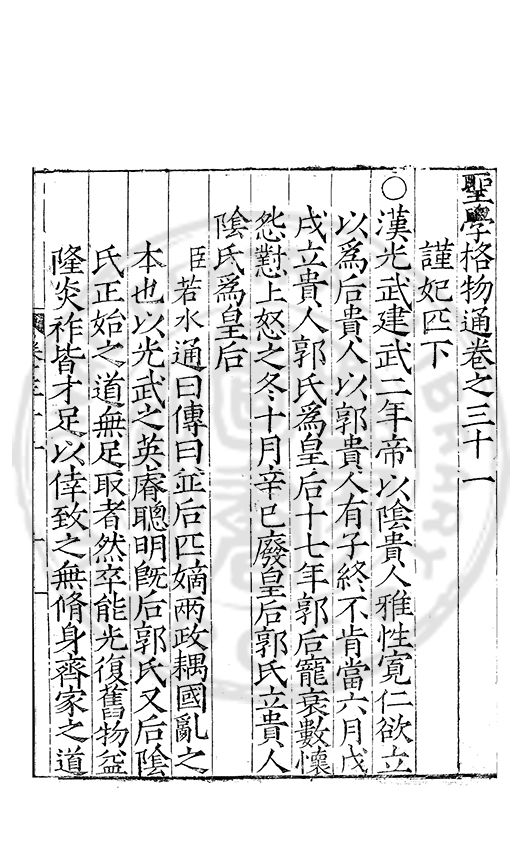 聖學格物通卷之三十一
謹妃匹下
○漢光武建武二年帝以陰貴人雅性寛仁欲立
以爲后貴人以郭貴人有子終不肯當六月戊
戌立貴人郭氏爲皇后十七年郭后寵衰數懷
怨懟上怒之冬十月辛巳廢皇后郭氏立貴人
陰氏爲皇后
臣若水通曰傳曰並后匹嫡兩政耦國亂之
本也以光武之英睿聰明旣后郭氏又后陰
氏正始之道無足取者然卒能光復舊物益
隆炎祚皆才足以倖致之無脩身齊家之道